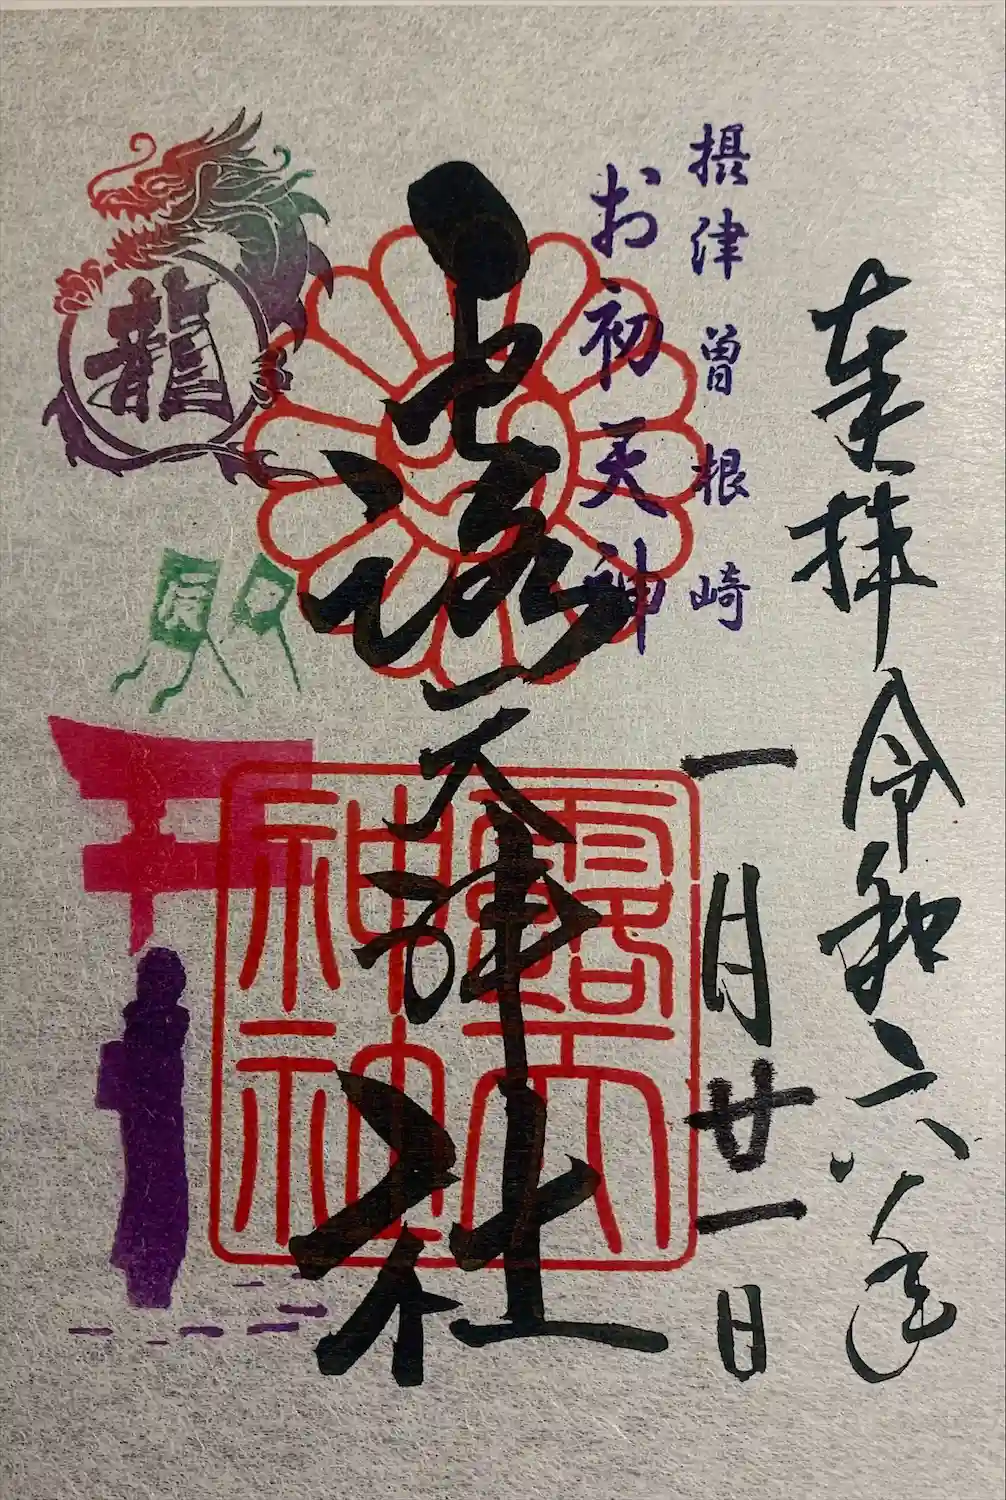 奉拝 令和六年
一月廿一日
摂津曽根崎
お初天神
露天神社
露天
神社
龍
辰